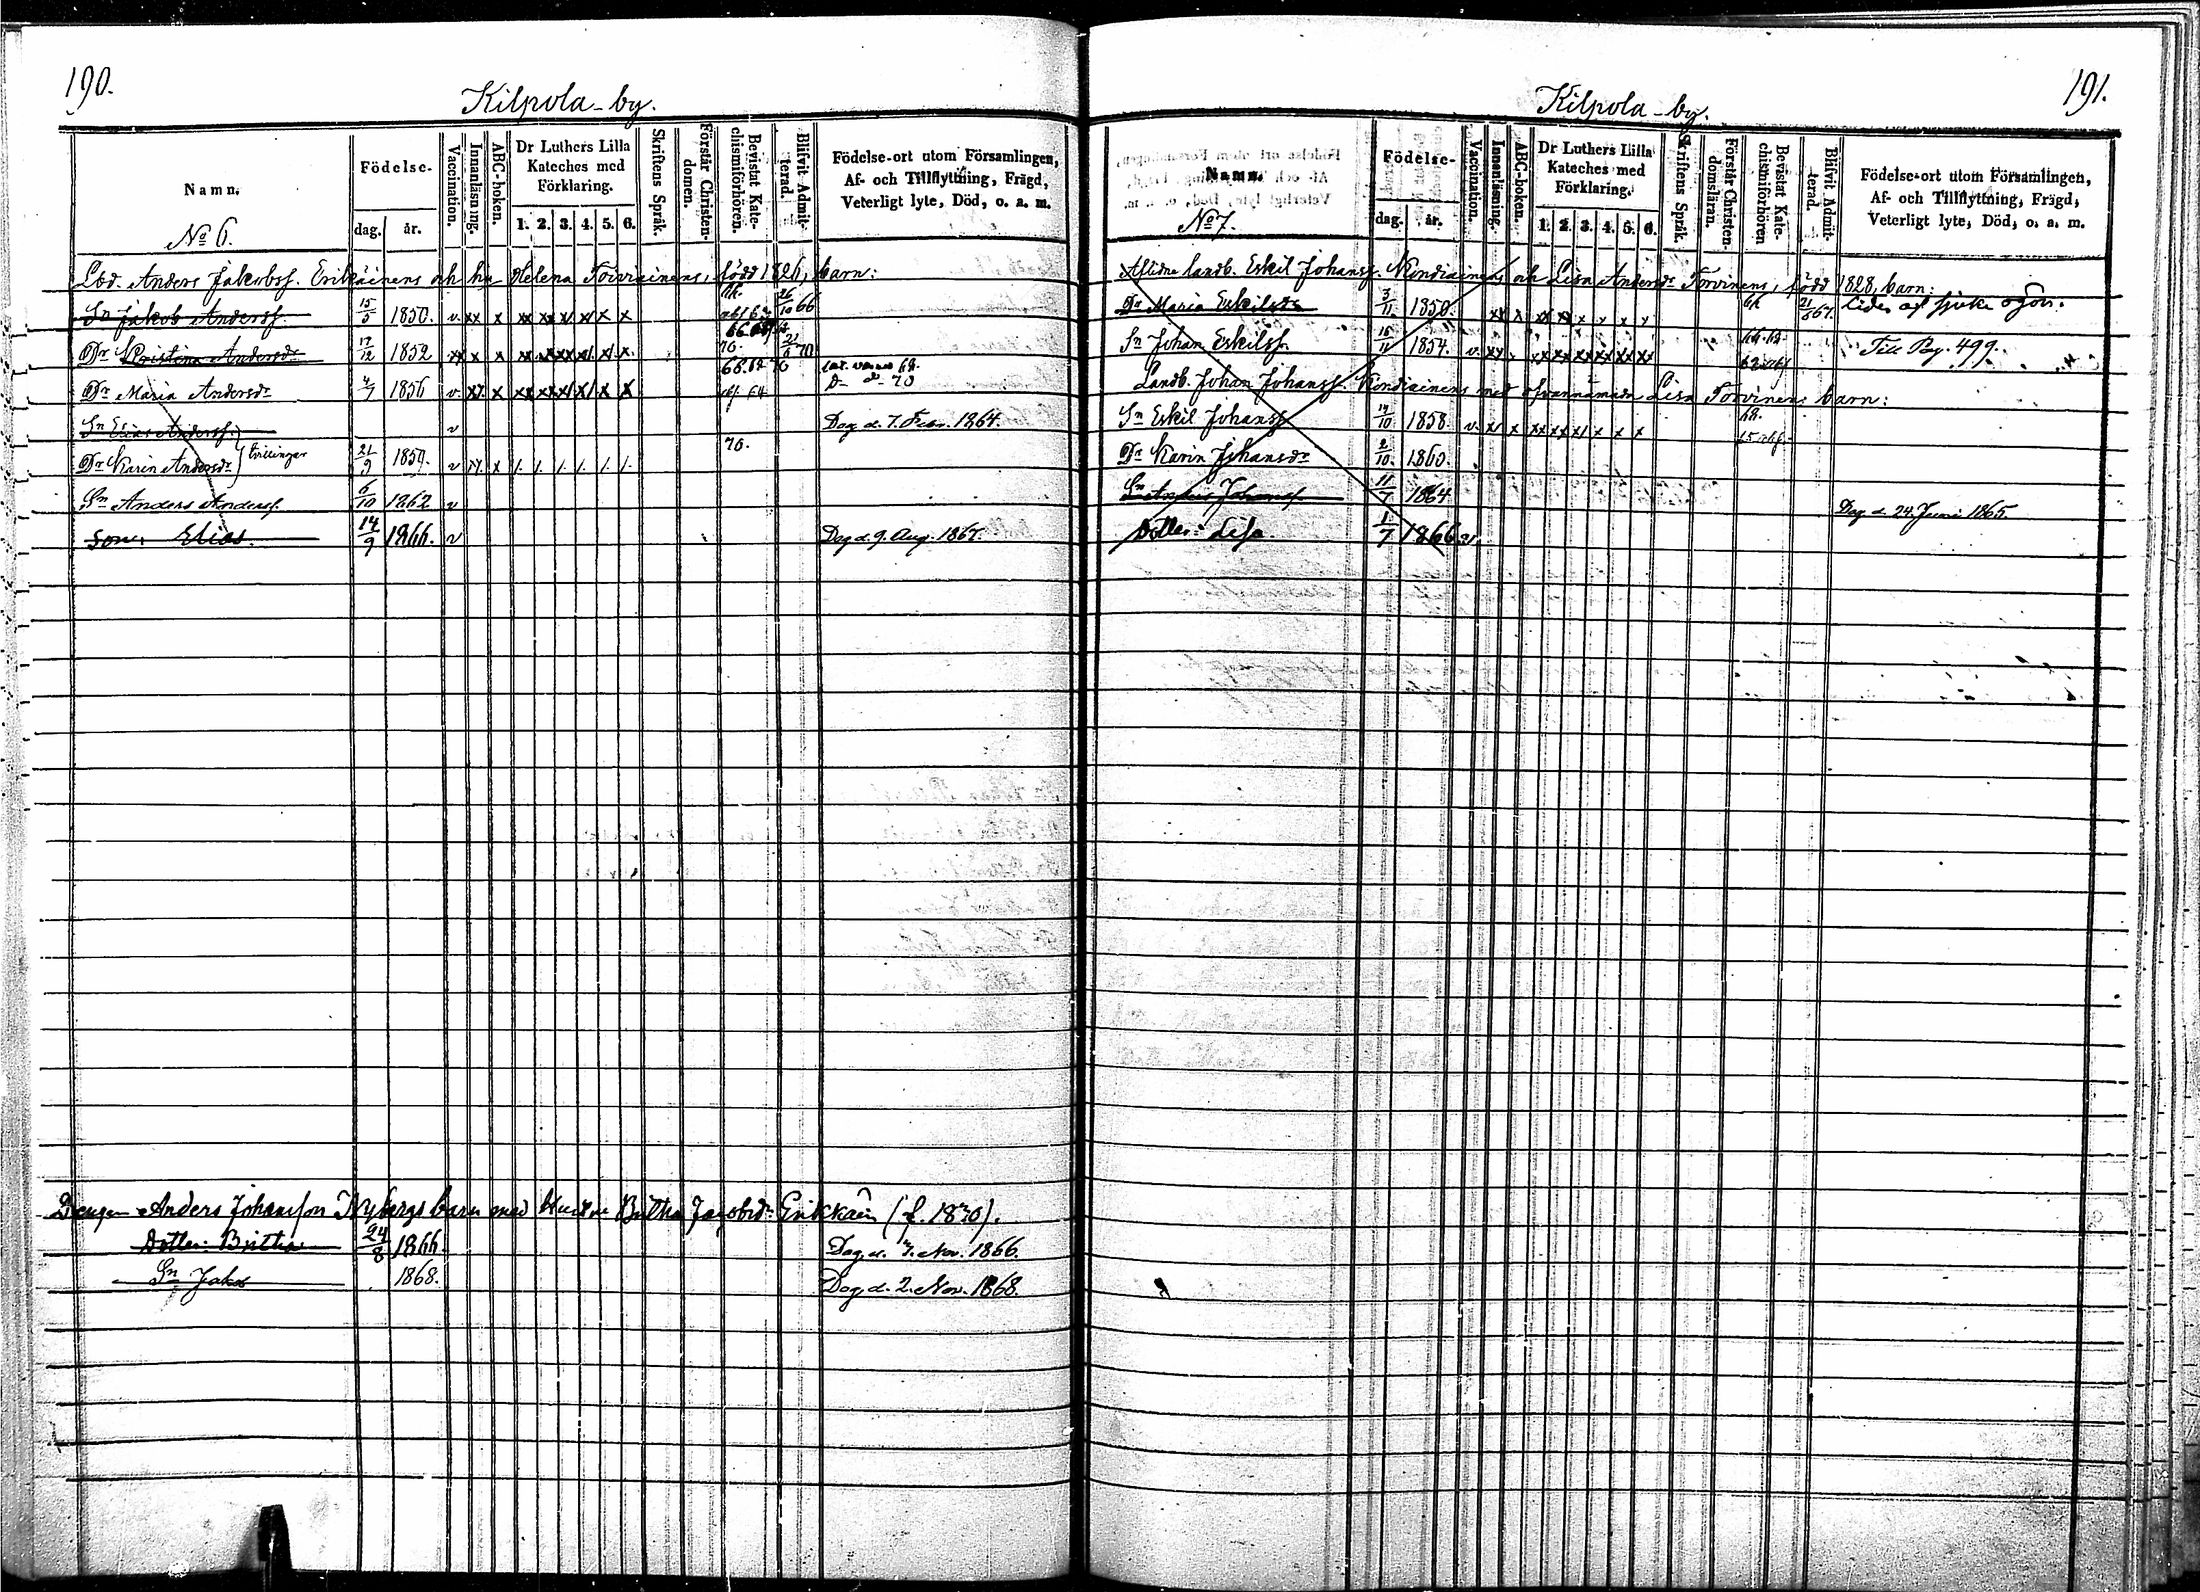 190.
Kilpola-by.
Namn. Födelse- Vaccination. Innanläsning. ABC-boken. Dr Luthers Lilla Kateches med Förklaring. Skriftens Språk. Förstår Christendomen. Bevistat Katechismiförhören. Blifvit Admitterad. Födelse-ort utom Församlingen, Af- och Tillflyttning, Frägd, Veterligt lyte, Död, o. a. m.
dag. år. 1. 2. 3. 4. 5. 6.
No 6.
Lbd. Anders Jakobss. Erikäinens och hu Helena Torviainens, född 1826, barn:
Sn Jakob Anderss. 15/5 1850. v. xx x xx xx x x x x 26/10 66
Dr Kristina Andersdr 17/12 1852 xx x x 70. 70
Dr Maria Andersdr 4/7 1856 v. xx. x 68. 69 70 64 D- d- 70
Sn Elias Anderss. v Dog d. 7. Febr. 1864.
Dr Karin Andersdr } tvillingar 21/9 1859. v xx. x /. /. /. /. /. /. 70.
Sn Anders Anderss. 6/10 1862 v
Son: Elias. 14/9 1866. v Dog d. 9. Aug. 1867.
Drengen Anders Johansson Nybergs barn med Hustru Britha Jacobsdr Erikkäin (f. 1840).
Dotter: Britha 24/8 1866 Dog d. 7. Nov. 1866.
Sn Jakob 1868. Dog d. 2. Nov. 1868.
191.
Kilpola-by.
Namn. Födelse- Vaccination. Innanläsning. ABC-boken. Dr Luthers Lilla Kateches med Förklaring. Skriftens Språk. Förstår Christendomsläran. Bevistat Katechismiförhören Blifvit Admitterad. Födelse-ort utom Församlingen, Af- och Tillflyttning, Frägd, Veterligt lyte, Död, o. a. m.
dag. år. 1. 2. 3. 4. 5. 6.
No 7.
Aflidne landb. Eskil Johanss. Kondiainens och Lisa Andersdr Torvinens, född 1828, barn:
Dr Maria Eskilsdr 3/11 1850. xx x xx xx x x x x 21/6 67. Lider af sjuka ögon.
Sn Johan Eskilss. 1854. v. xx Till Pag. 499.
Landb. Johan Johanss. Kondiainens med ofvannämnda Lisa Torvinens barn:
Sn Eskil Johanss. 14/10 1858. v. xx x xx xx x x x x 68.
Dr Karin Johansdr 2/10. 1860.
Sn Anders Johanss. 11/7 1864 Dog d. 24. Juni 1865.
Dotter: Lisa. 1/7 1866 v.